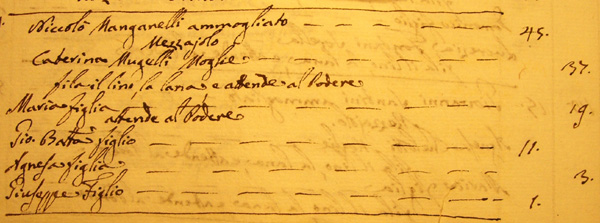 Niccolò Manganelli ammogliato — — — — — 45.
Mezzajolo
Caterina Mugelli Moglie — — — — — — 37.
fila il lino la lana e attende al Podere
Maria figlia — — — — — — 19.
attende al Podere
Gio. Batta figlio — — — — — — 11.
Agnesa figlia — — — — — — 3.
Giuseppe Figlio — — — — — — 1.